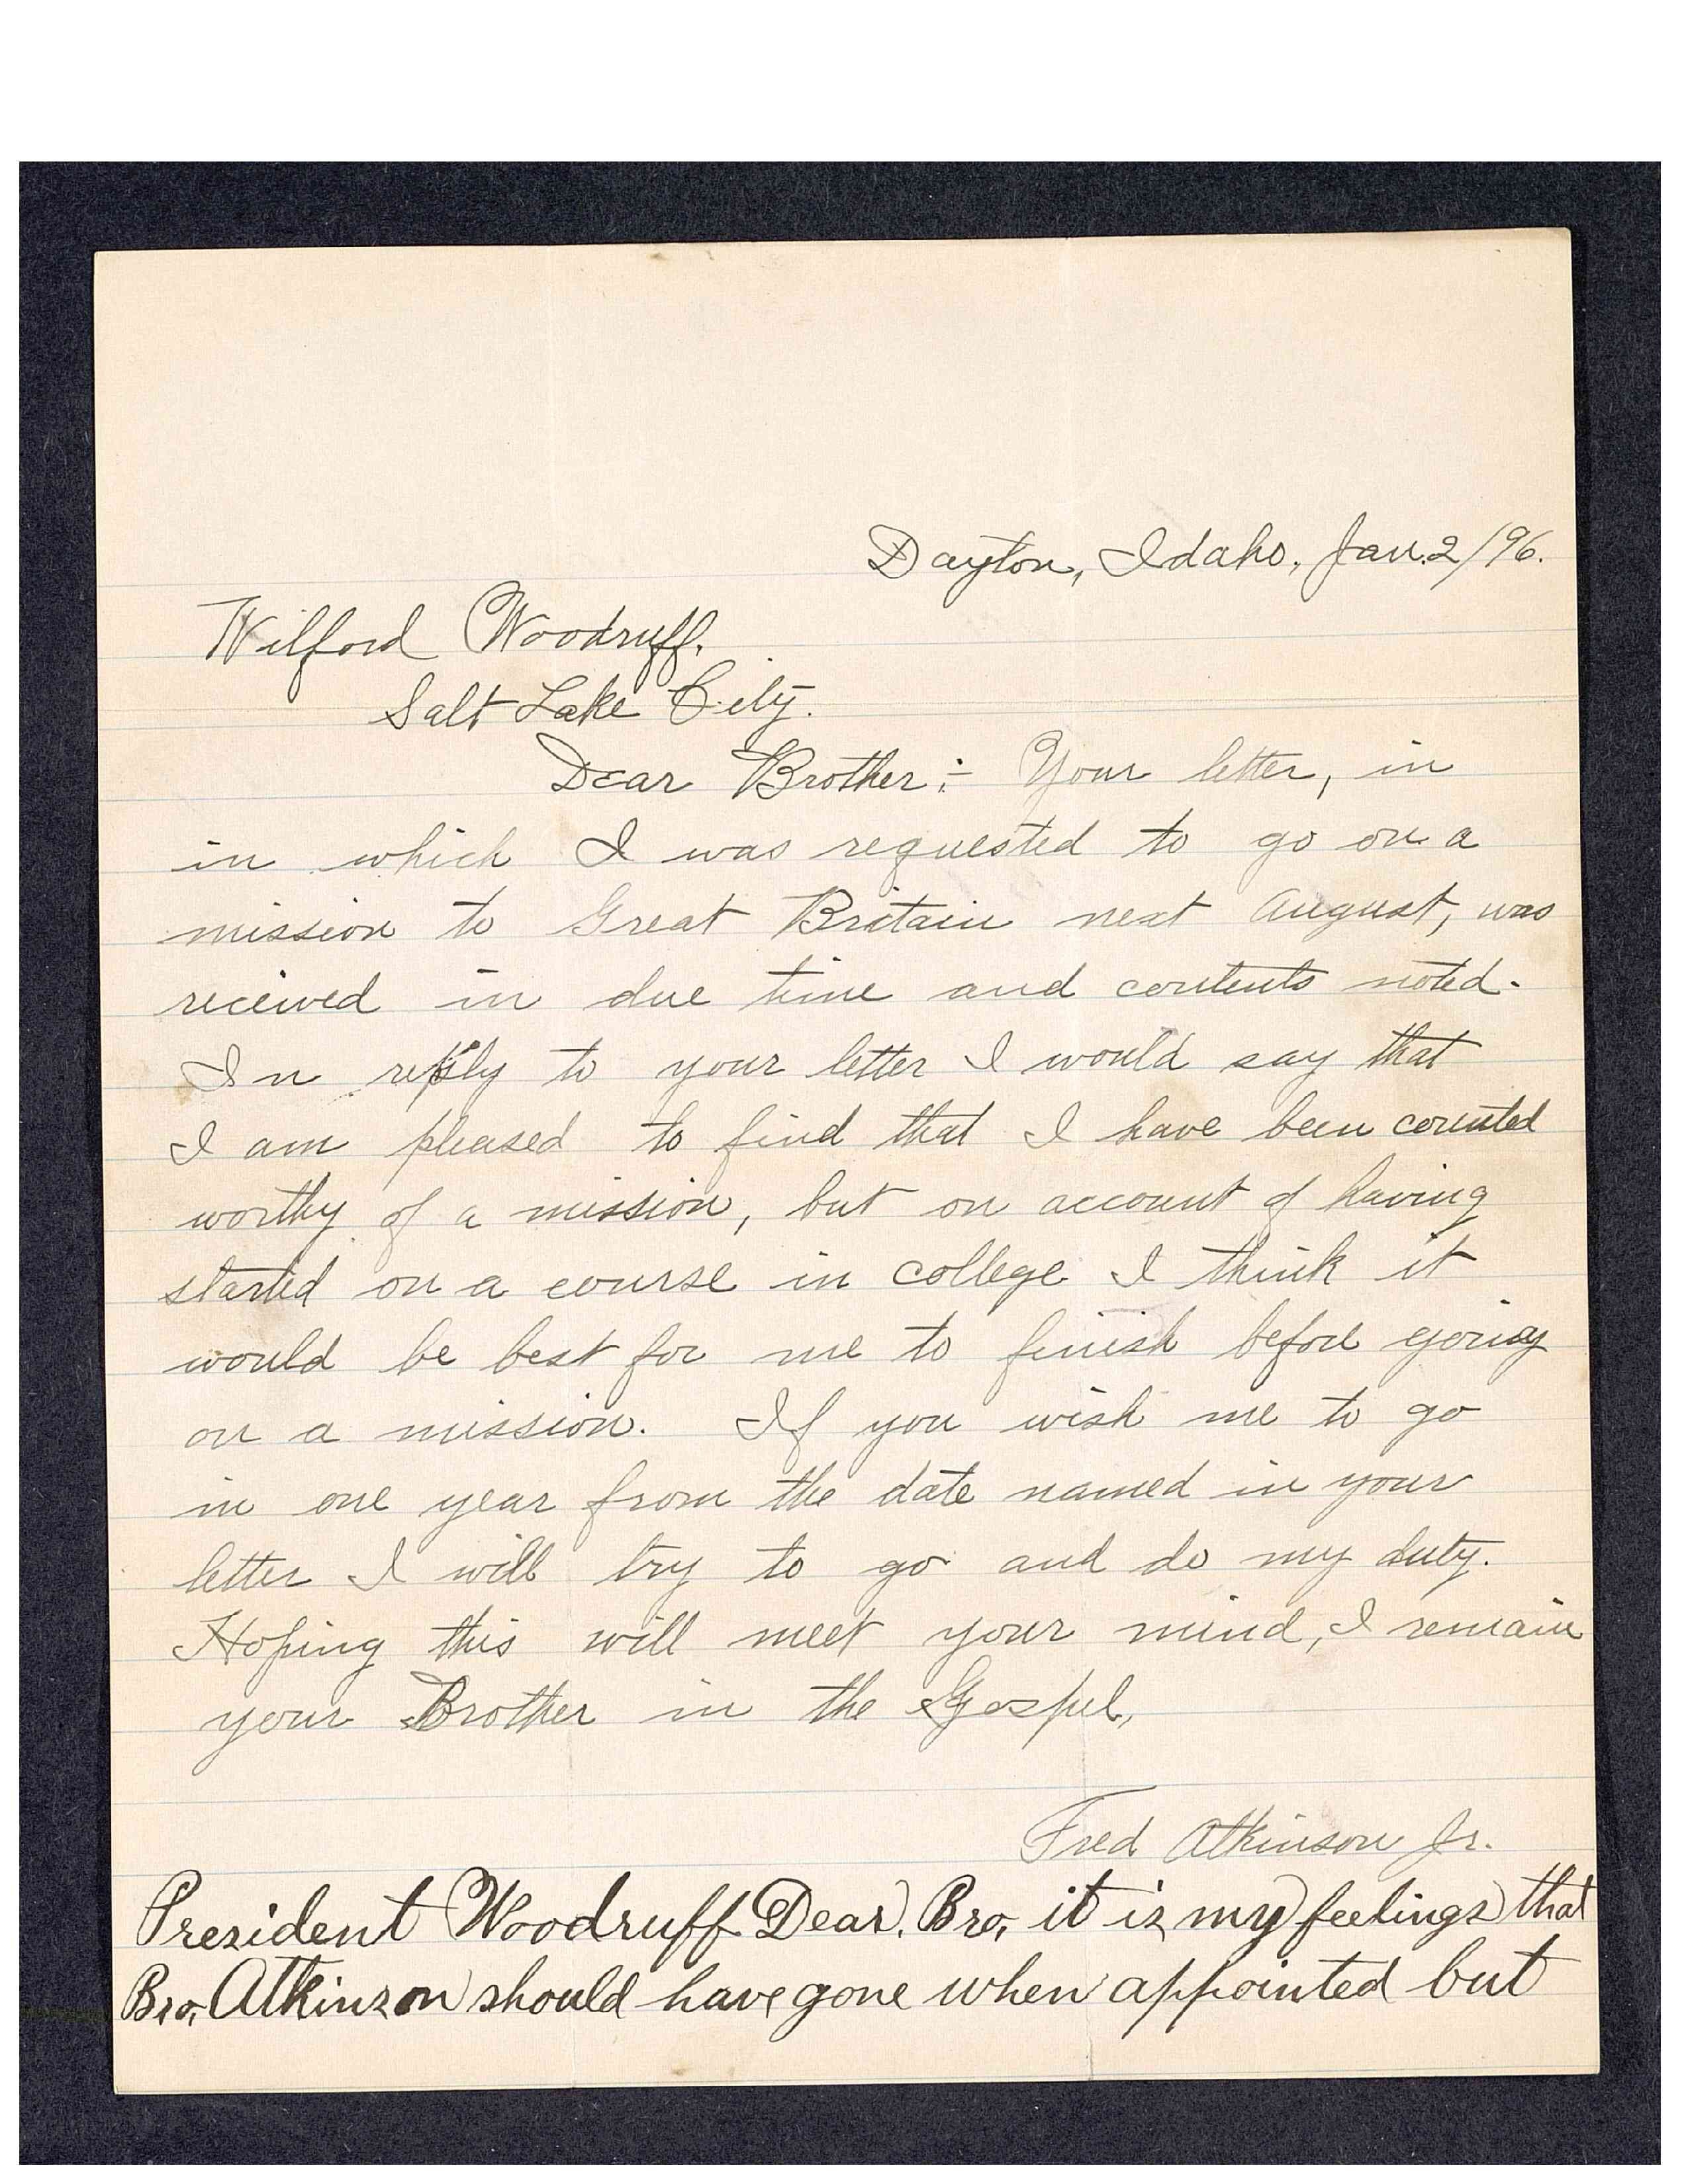 Dayton, Idaho, Jan. 2/96.
Wilford Woodruff.
Salt Lake City.
Dear Brother:- Your letter, in
in which I was requested to go on a
mission to Great Britain next August, was
received in due time and contents noted.
In reply to your letter I would say that
I am pleased to find that I have been counted
worthy of a mission, but on account of having
started on a course in college I think it
would be best for me to finish before going
on a mission. If you wish me to go
in one year from the date named in your
letter I will try to go and do my duty.
Hoping this will meet your mind, I remain
your Brother in the Gospel,
Fred Atkinson Jr.
President Woodruff Dear. Bro, it is my feelings that
Bro, Atkinson should have gone when appointed but